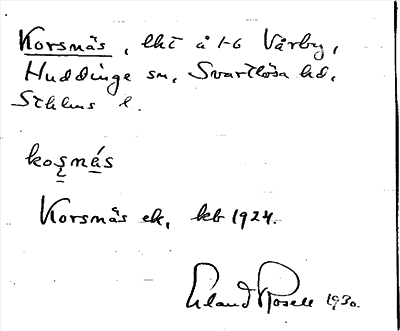 Korsnäs, lht å 1-6 Vårby,
Huddinge sn, Svartlösa hd,
Sthlms l.
koşnäs
Korsnäs ek, kbt 1924.
Erland Rosell 1930.